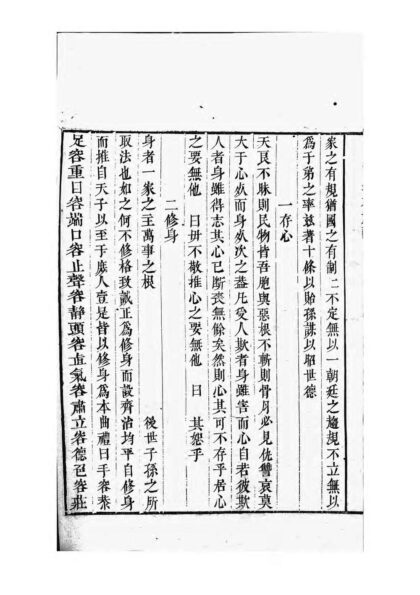 家之有規猶國之有制制不定無以一朝廷之趨規不立無以
為子弟之率玆著十條以貽孫謀以昭世德
一存心
天良不昧則民物皆吾胞與惡根不斬則骨肉必見仇讐哀莫
大于心死而身死次之蓋凡愛人欺者身雖吿而心自若彼欺
人者身雖得志其心已斷喪無餘矣然則心其可不存乎居心
之要無他曰毋不敬推心之要無他曰其恕乎
二修身
身者一家之主萬事之根 後世子孫之所
取法也如之何不修格致誠正為修身而設齊治均平自修身
而推自天子以至于庶人壹是皆以修身為本曲禮曰手容恭
足容重目容端口容止聲容靜頭容直氣容肅立容德色容莊